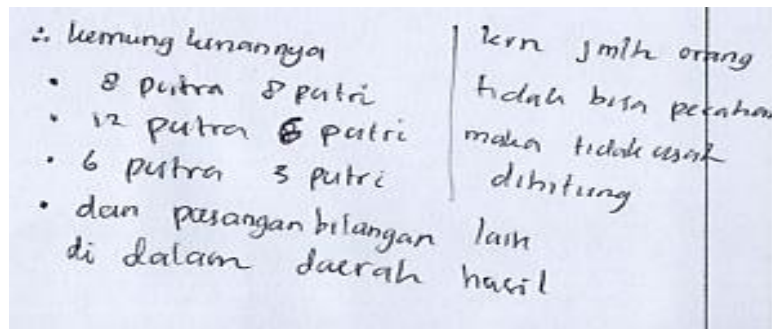 ∴ kemungkinannya
• 8 putra 8 putri
• 12 putra 6 putri
• 6 putra 3 putri
• dan pasangan bilangan lain
di dalam daerah hasil
krn jmlh orang
tidak bisa pecahan
maka tidak usah
dihitung